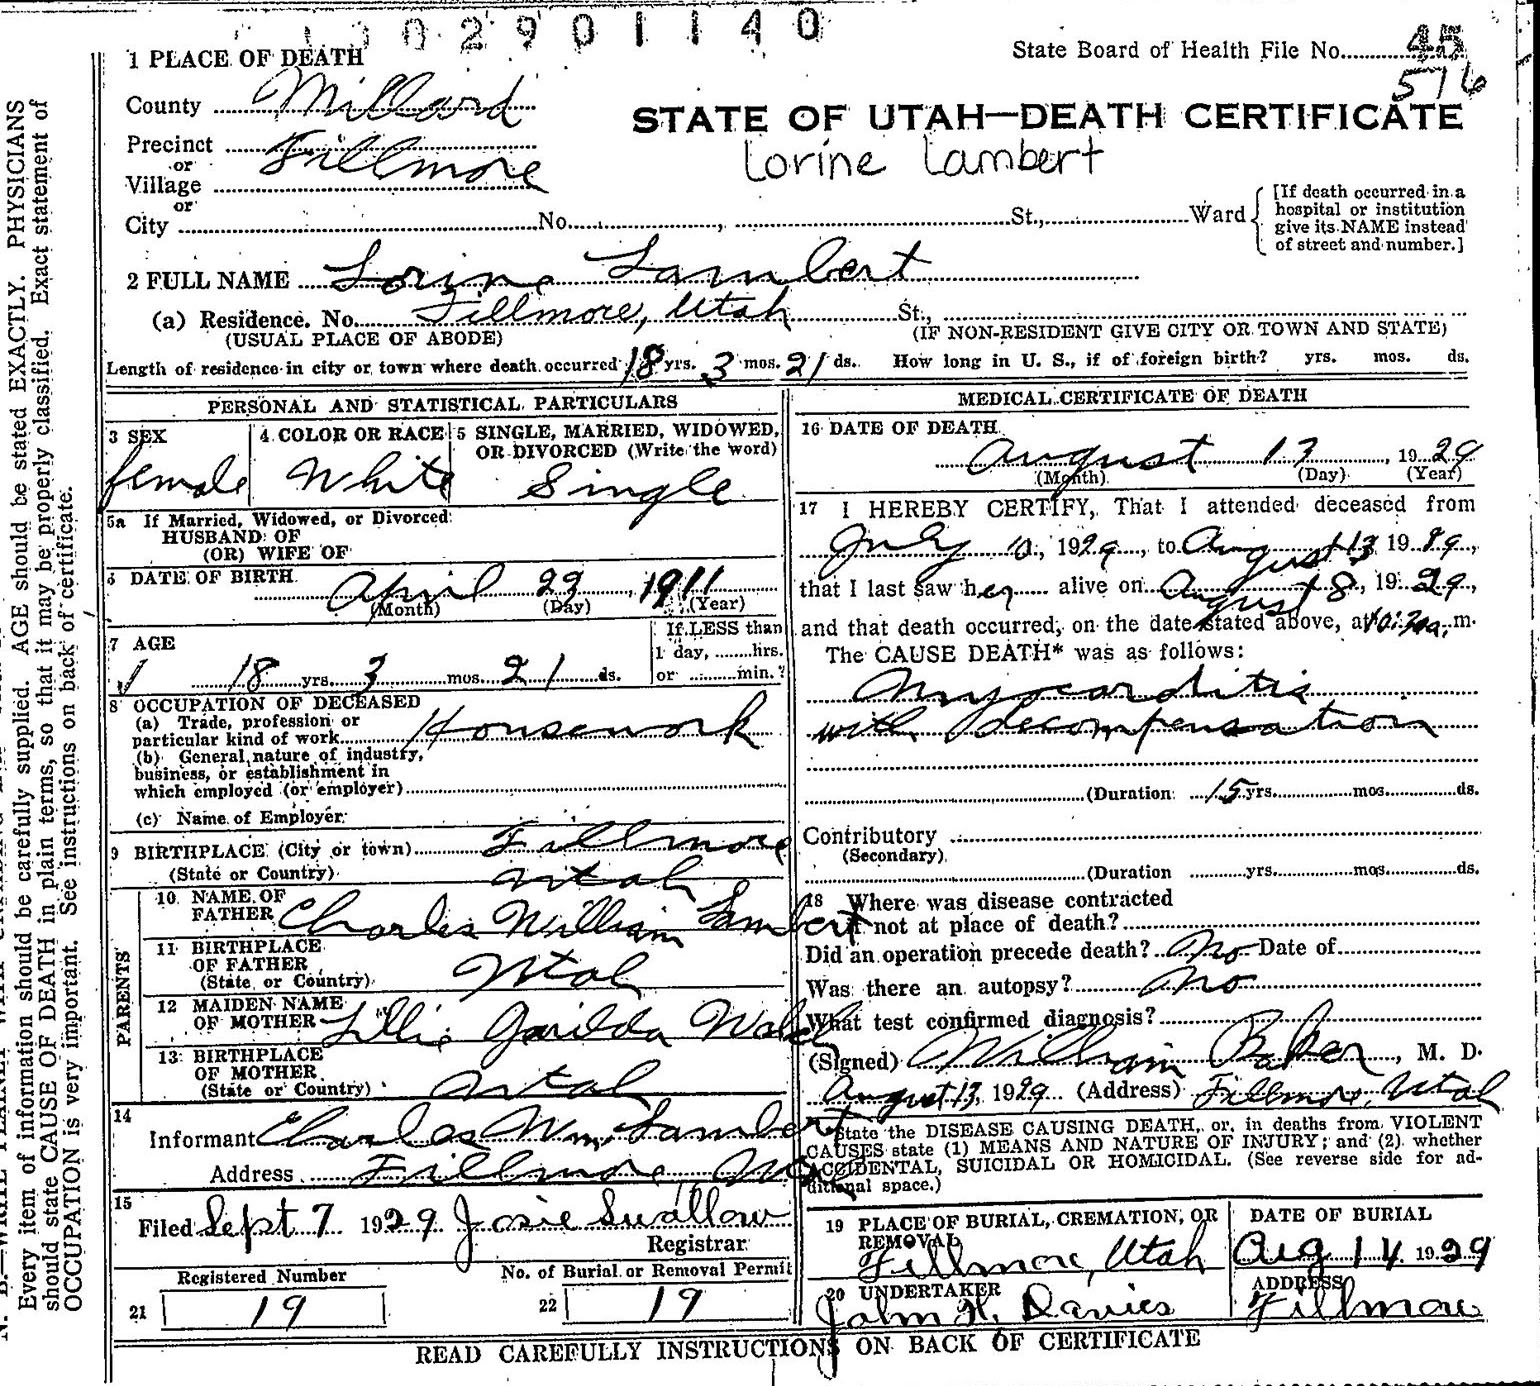 1002901140
State Board of Health File No. 45
576
1 PLACE OF DEATH
County Millard
STATE OF UTAH—DEATH CERTIFICATE
Precinct
or
Village Fillmore
Lorine Lambert
or
City No. , St., Ward
[If death occurred in a
hospital or institution
give its NAME instead
of street and number.]
2 FULL NAME Lorine Lambert
(a) Residence. No. Fillmore, Utah St.,
(USUAL PLACE OF ABODE) (IF NON-RESIDENT GIVE CITY OR TOWN AND STATE)
Length of residence in city or town where death occurred 18 yrs. 3 mos. 21 ds. How long in U. S., if of foreign birth? yrs. mos. ds.
PERSONAL AND STATISTICAL PARTICULARS
3 SEX
female
4 COLOR OR RACE
White
5 SINGLE, MARRIED, WIDOWED,
OR DIVORCED (Write the word)
Single
5a If Married, Widowed, or Divorced
HUSBAND OF
(OR) WIFE OF
6 DATE OF BIRTH April 23, 1911
(Month) (Day) (Year)
7 AGE
18 yrs. 3 mos. 21 ds.
If LESS than
1 day, hrs.
or min.?
8 OCCUPATION OF DECEASED
(a) Trade, profession or
particular kind of work Housework
(b) General nature of industry,
business, or establishment in
which employed (or employer)
(c) Name of Employer
9 BIRTHPLACE (City or town) Fillmore
(State or Country) Utah
PARENTS
10 NAME OF
FATHER Charles William Lambert
11 BIRTHPLACE
OF FATHER
(State or Country) Utah
12 MAIDEN NAME
OF MOTHER Lillie
13 BIRTHPLACE
OF MOTHER
(State or Country) Utah
14
Informant Charles Wm. Lambert
Address Fillmore, Utah
15
Filed Sept 7 1929 Josie Swallow
Registrar
Registered Number
21 19
No. of Burial or Removal Permit
22 19
MEDICAL CERTIFICATE OF DEATH
16 DATE OF DEATH
August 13, 1929
(Month) (Day) (Year)
17 I HEREBY CERTIFY, That I attended deceased from
July 10, 1929, to August 13 1929,
that I last saw her alive on August 8, 1929,
and that death occurred, on the date stated above, at 10:30a. m.
The CAUSE DEATH* was as follows:
Myocarditis
with Decompensation
(Duration 15 yrs. mos. ds.
Contributory
(Secondary)
(Duration yrs. mos. ds.
18 Where was disease contracted
if not at place of death?
Did an operation precede death? No Date of
Was there an autopsy? No
What test confirmed diagnosis?
(Signed) William Baker, M. D.
August 13, 1929 (Address) Fillmore, Utah
State the DISEASE CAUSING DEATH, or, in deaths from VIOLENT
CAUSES state (1) MEANS AND NATURE OF INJURY; and (2) whether
ACCIDENTAL, SUICIDAL OR HOMICIDAL. (See reverse side for ad-
ditional space.)
19 PLACE OF BURIAL, CREMATION, OR
REMOVAL
Fillmore, Utah
DATE OF BURIAL
Aug 14 1929
20 UNDERTAKER
John H. Davies
ADDRESS
Fillmore
READ CAREFULLY INSTRUCTIONS ON BACK OF CERTIFICATE
Every item of information should be carefully supplied. AGE should be stated EXACTLY. PHYSICIANS
should state CAUSE OF DEATH in plain terms, so that it may be properly classified. Exact statement of
OCCUPATION is very important. See instructions on back of certificate.